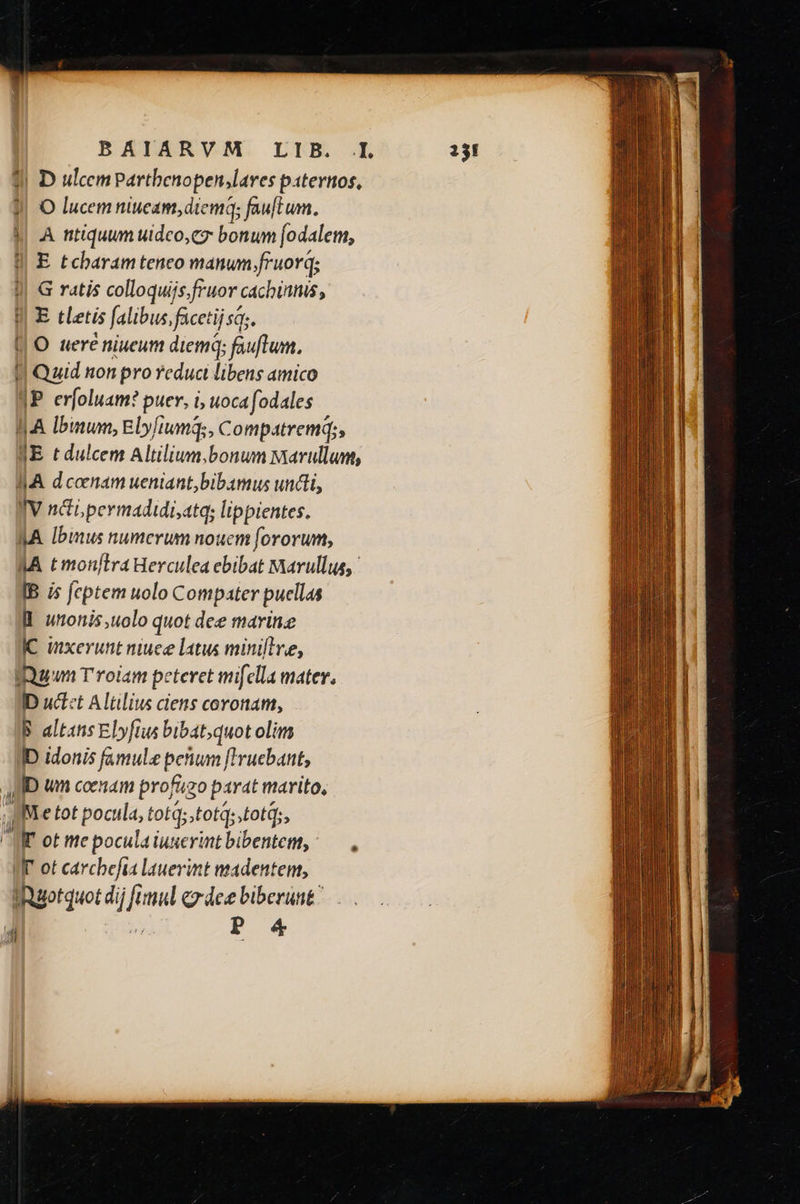 BAIARVM LIB. I. 231
D ulcem Parthenopen,lares paternos,
O lucem niueam,diemq; faustum.
A ntiquum uideo,& bonum sodalem,
E t charam teneo manum,fruorq;
G ratis colloquijs,fruor cachinnis,
E t lætis salibus,facetijsq;.
O uere niueum diemq; faustum.
Quid non pro reduci libens amico
P ersoluam? puer, i, uoca sodales
A lbinum, Elysiumq;, Compatremq;,
E t dulcem Altilium,bonum Marullum,
A d cœnam ueniant,bibamus uncti,
V ncti,permadidi,atq; lippientes.
A lbinus numerum nouem sororum,
A t monstra Herculea ebibat Marullus,
B is septem uolo Compater puellas
I unonis,uolo quot deæ marinæ
C inxerunt niueæ latus ministræ,
Quum Troiam peteret misella mater.
D uctet Altilius ciens coronam,
B altans Elysius bibat,quot olim
D idonis famulæ penum struebant,
D um cœnam profugo parat marito,
M e tot pocula, totq;,totq;,totq;,
T ot me pocula iuuerint bibentem,
T ot carchesia lauerint madentem,
Quotquot dij simul & deæ biberunt
P 4